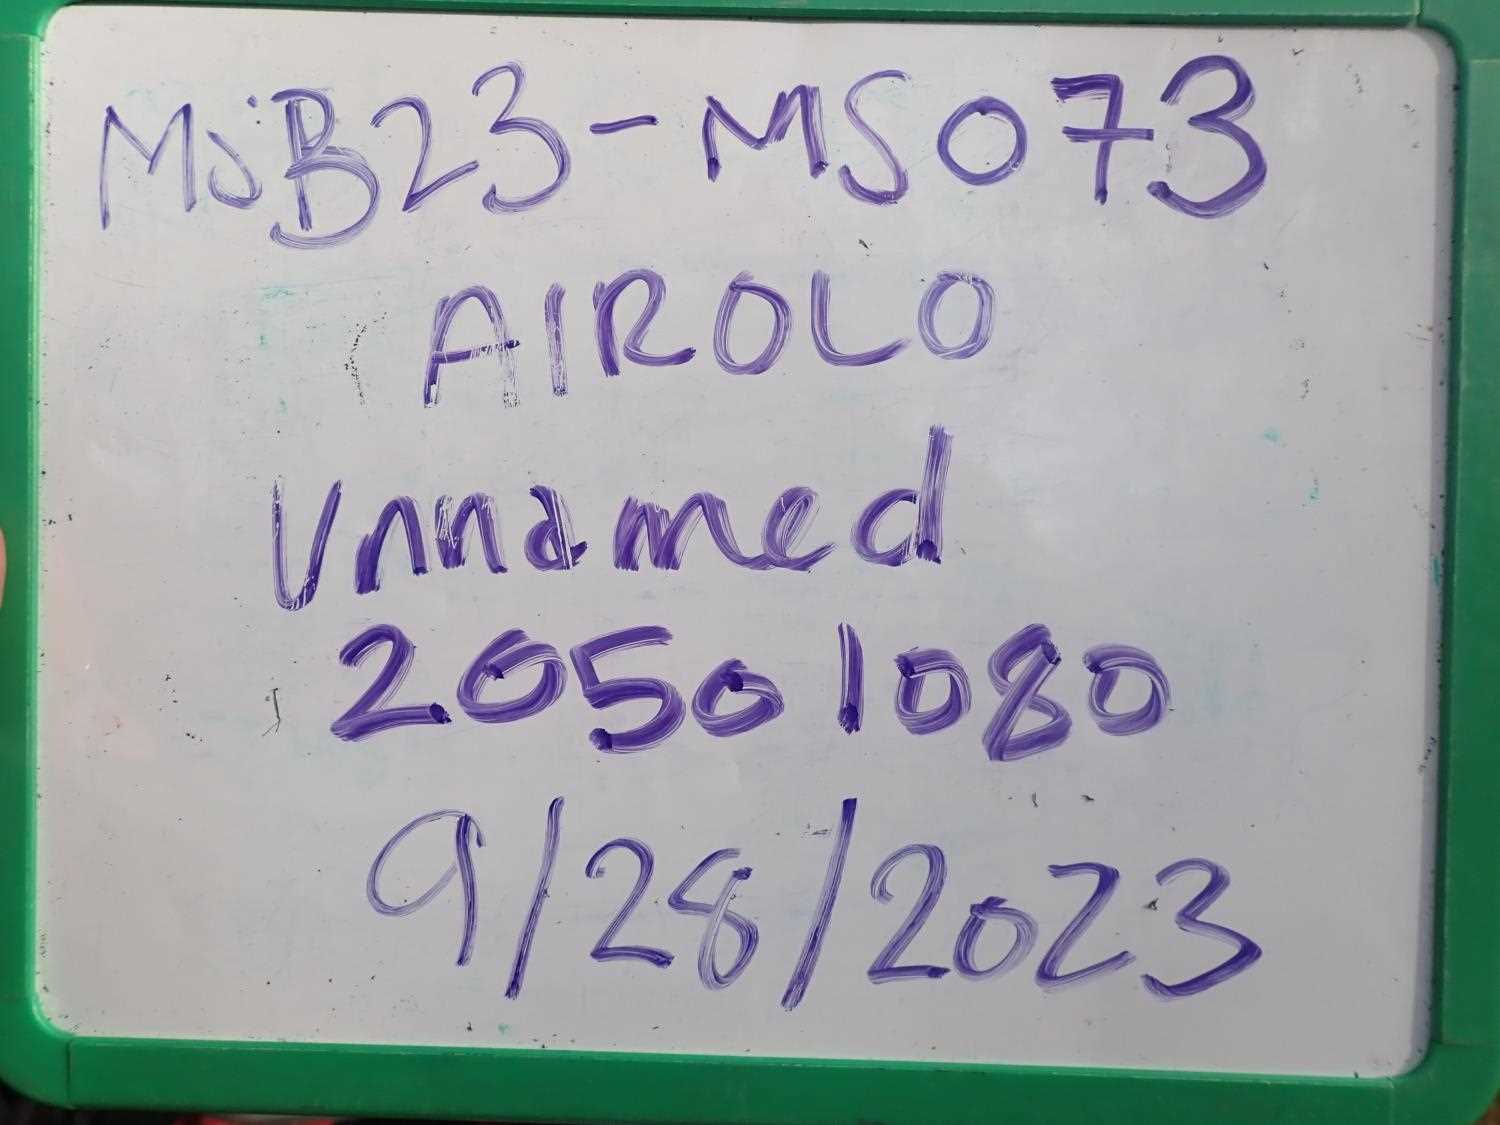 MjB23-MS073
AIROLO
Unnamed
20501080
9/28/2023